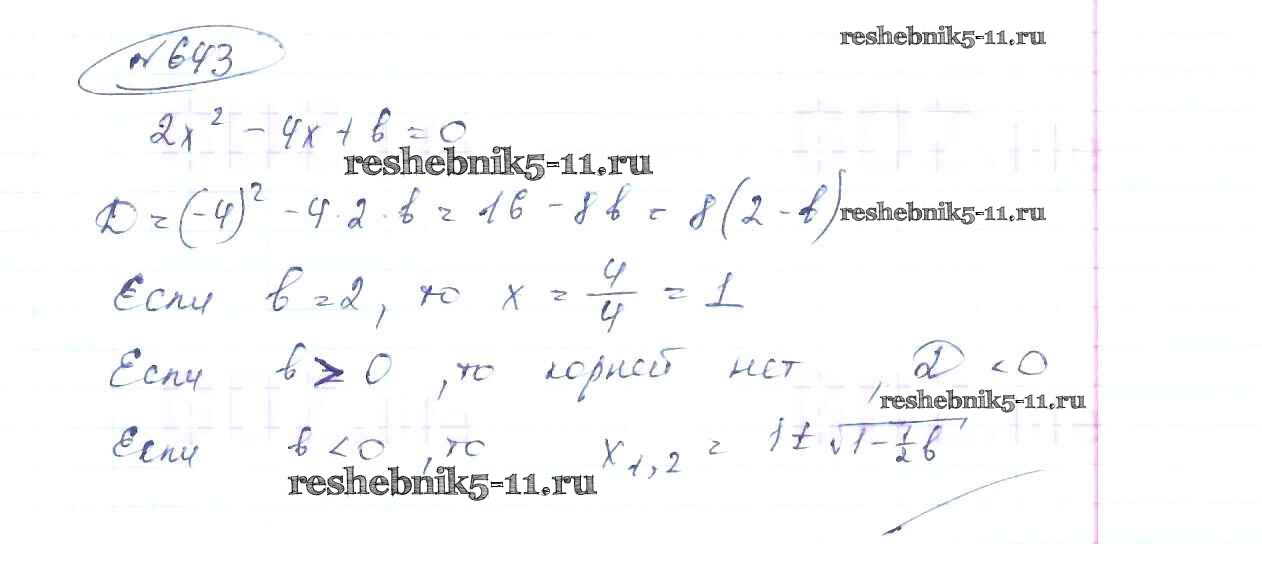 №643
reshebnik5-11.ru
2x² - 4x + b = 0
reshebnik5-11.ru
D = (-4)² - 4·2·b = 16 - 8b = 8(2-b)
reshebnik5-11.ru
Если b = 2, то x = 4/4 = 1
Если b > 0, то корней нет, D < 0
reshebnik5-11.ru
Если b < 0, то x1,2 = 1 ± √1 - 1/2 b
reshebnik5-11.ru